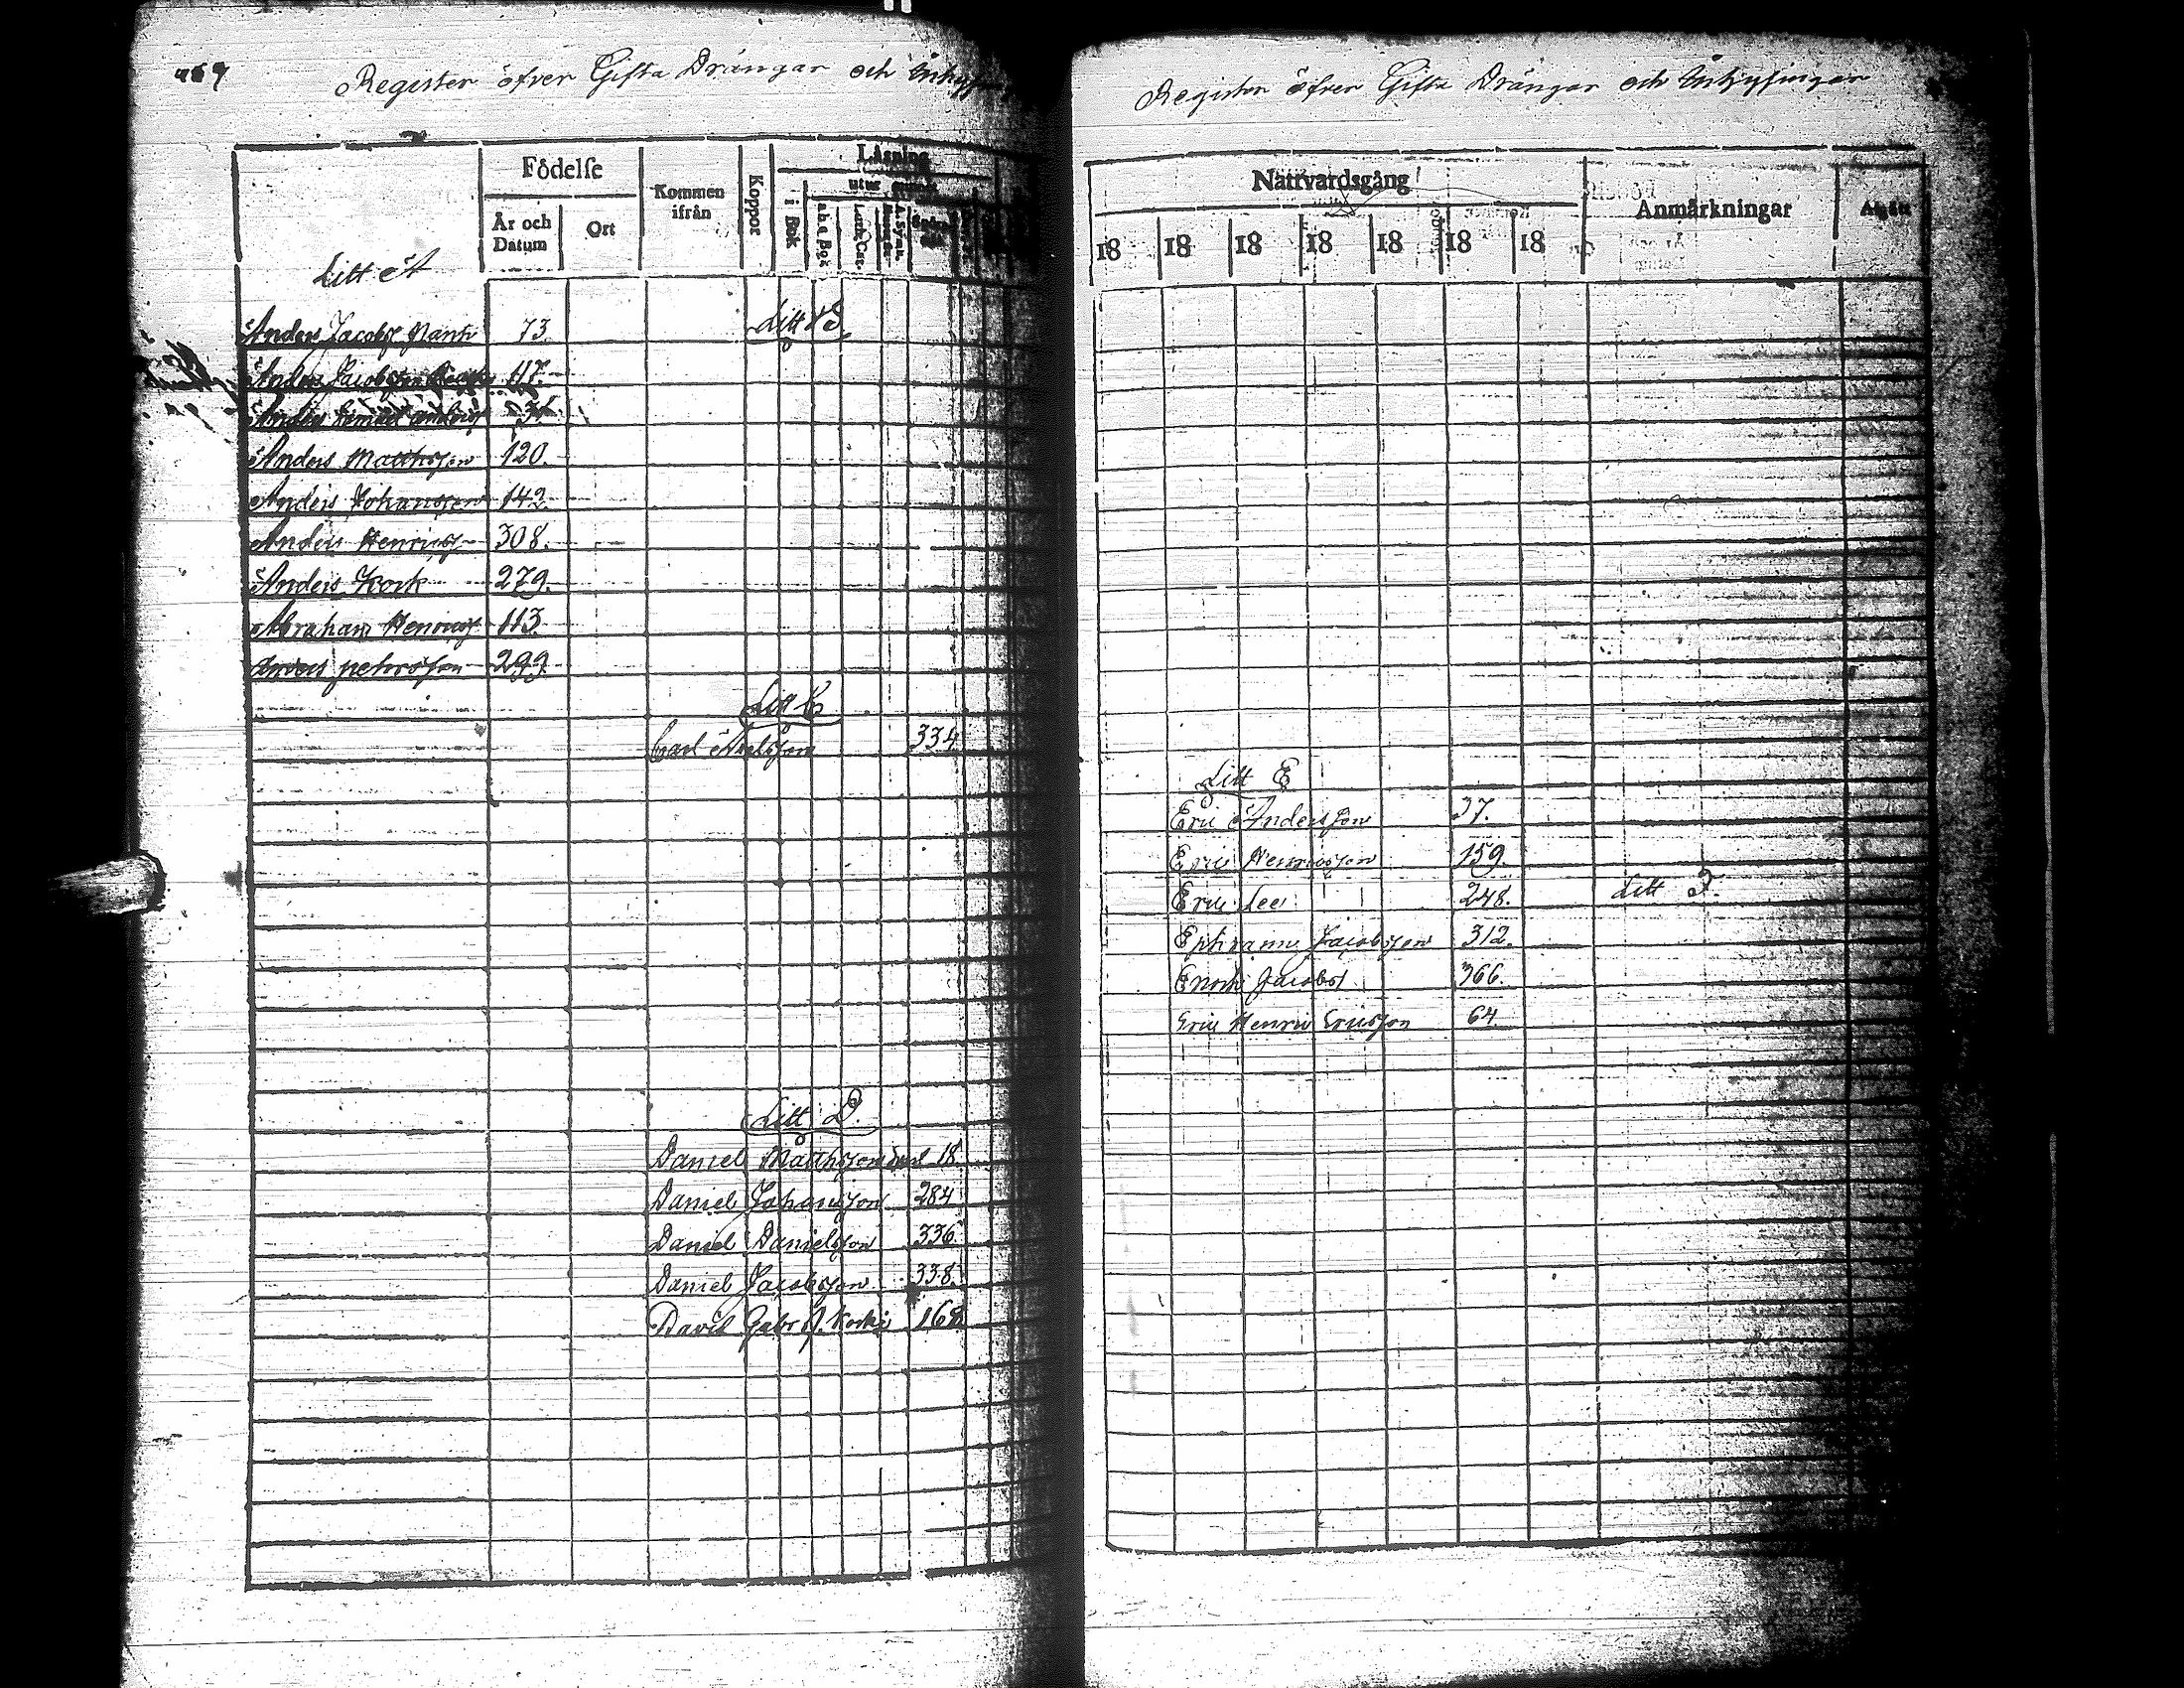 Register öfver Gifta Drängar och
Födelse
År och Datum
Ort
Kommen ifrån
Koppor
Läsning
i Bok
Litt A
Litt B
Anders Jacobss 73.
Anders Jacobsson 117.
Anders
Anders Matthsson 120.
Anders Johansson 142.
Anders Henricss 308.
Anders Kork 279.
Abraham Henricss 113.
Anders petersson 299.
Litt C
Carl Axelsson 334
Litt D.
Daniel Matthsson 18
Daniel Johansson 284
Daniel Danielsson 336.
Daniel Jacobsson 338.
David Gabr 168
Register öfver Gifta Drängar och Inhysingar
Nattvardsgång
18 18 18 18 18 18 18
Anmärkningar
Litt E
Eric Andersson 37.
Eric Henricsson 159.
Eric Lee 248.
Litt F.
Ephraim Jacobsson 312.
Enoch Jacobss 366.
Eric Henric Ericsson 64.